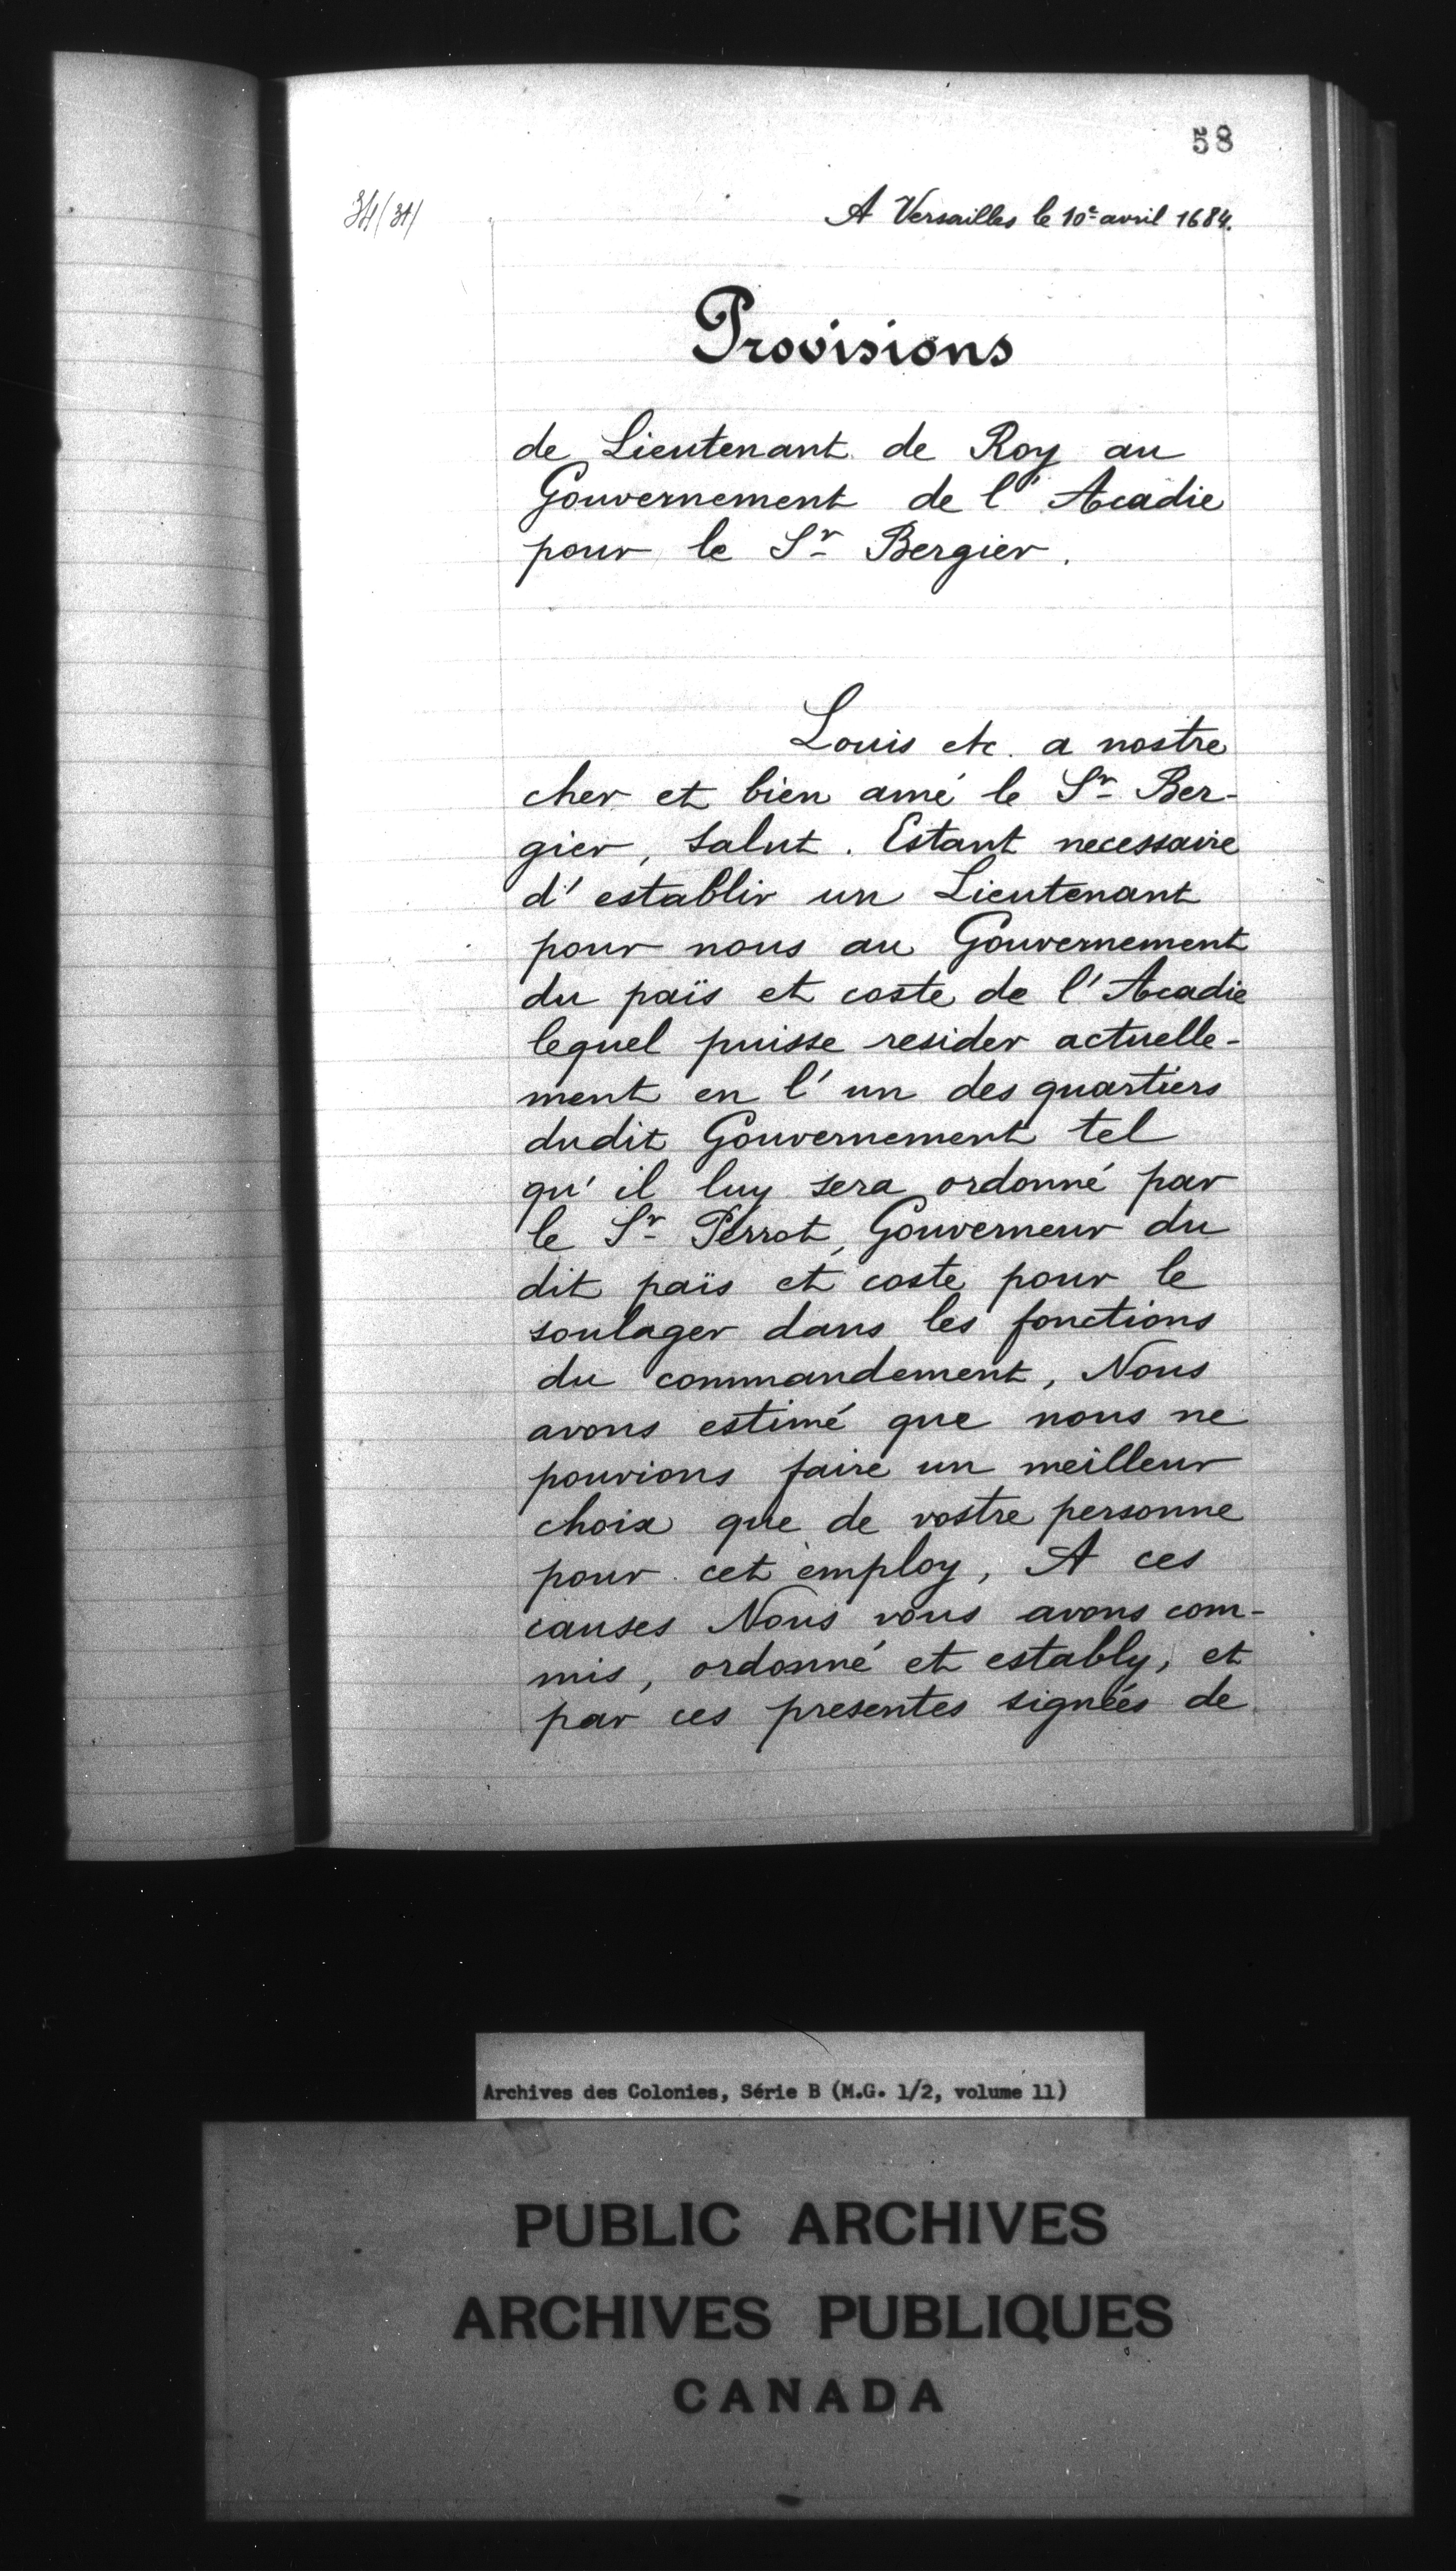 58
A Versailles le 10e avril 1684.
Provisions
de Lieutenant de Roy au
Gouvernement de l'Acadie
pour le Sr Bergier.
Louis etc. a nostre
cher et bien amé le Sr Ber-
gier, Salut. Estant necessaire
d'establir un Lieutenant
pour nous au Gouvernement
du païs et coste de l'Acadie
lequel puisse resider actuelle-
ment en l'un des quartiers
dudit Gouvernement tel
qu'il luy sera ordonné par
le Sr Perrot, Gouverneur du
dit païs et coste pour le
soulager dans les fonctions
du commandement, Nous
avons estimé que nous ne
pouvions faire un meilleur
choix que de vostre personne
pour cet employ, A ces
causes Nous vous avons com-
mis, ordonné et estably, et
par ces presentes signées de
Archives des Colonies, Série B (M.G. 1/2, volume 11)
PUBLIC ARCHIVES
ARCHIVES PUBLIQUES
CANADA